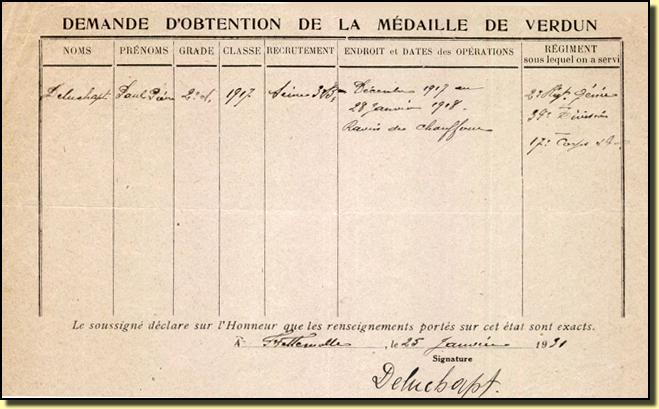 DEMANDE D'OBTENTION DE LA MÉDAILLE DE VERDUN
NOMS PRÉNOMS GRADE CLASSE RECRUTEMENT ENDROIT et DATES des OPÉRATIONS RÉGIMENT
sous lequel on a servi
Deluchapt Paul 1917 Seine Décembre 1917 au 2e Rgt Génie
28 Janvier 1918. 39e Division
Ravin des Chauffour 17e Corps
Le soussigné déclare sur l'Honneur que les renseignements portés sur cet état sont exacts.
À le 25 Janvier 1931
Signature
Deluchapt.